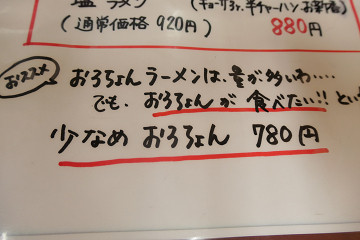 塩ラーメン (ギョーザ3ヶ、半チャーハン、お新香)
(通常価格 920円) 880円
おススメ
おろちょんラーメンは、量が多いわ‥‥
でも、おろちょんが 食べたい!! とい
少なめ おろちょん 780円